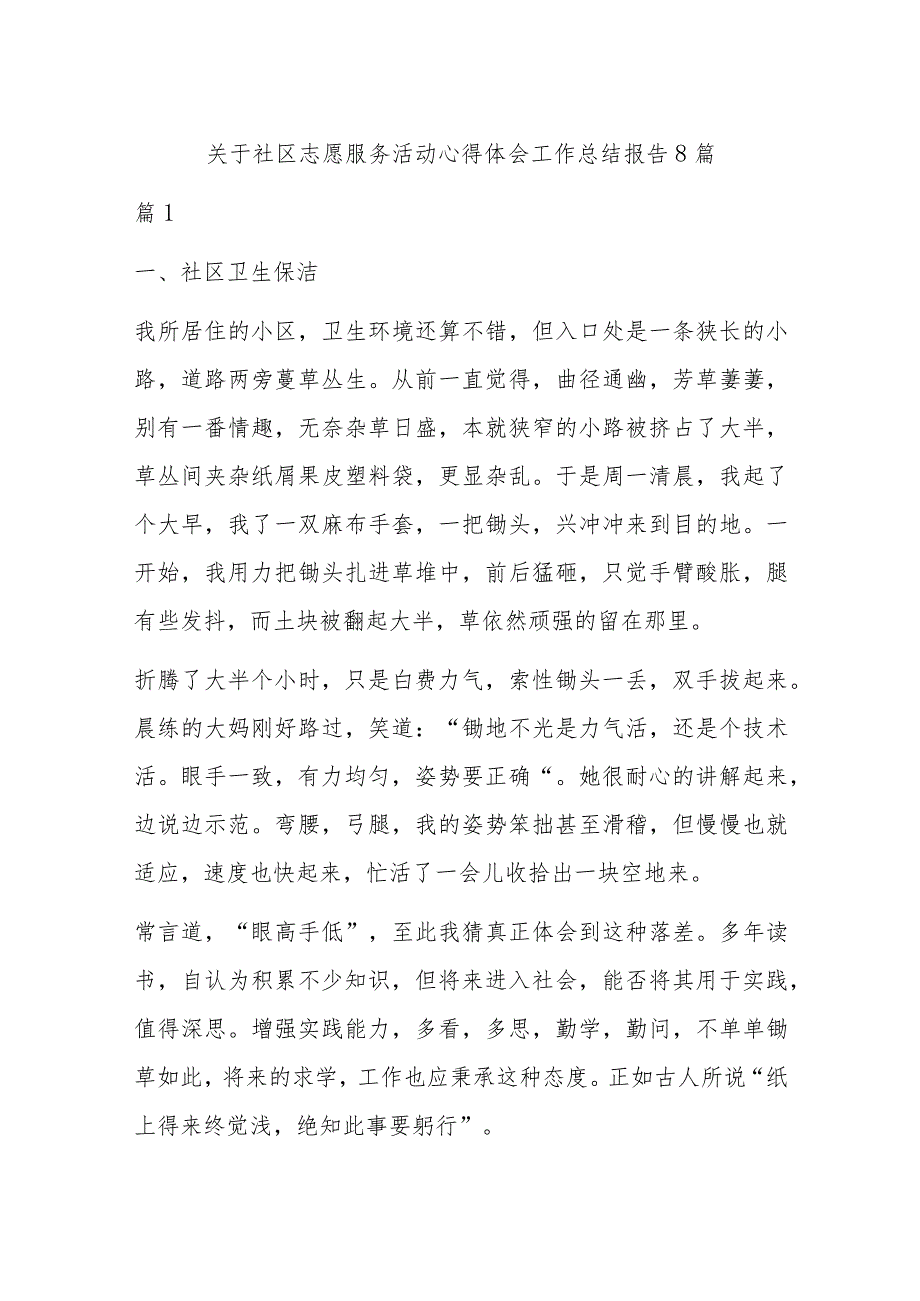 关于社区志愿服务活动心得体会工作总结报告8篇
篇1
一、社区卫生保洁
我所居住的小区，卫生环境还算不错，但入口处是一条狭长的小
路，道路两旁蔓草丛生。从前一直觉得，曲径通幽，芳草萋萋，
别有一番情趣，无奈杂草日盛，本就狭窄的小路被挤占了大半，
草丛间夹杂纸屑果皮塑料袋，更显杂乱。于是周一清晨，我起了
个大早，我了一双麻布手套，一把锄头，兴冲冲来到目的地。一
开始，我用力把锄头扎进草堆中，前后猛砸，只觉手臂酸胀，腿
有些发抖，而土块被翻起大半，草依然顽强的留在那里。
折腾了大半个小时，只是白费力气，索性锄头一丢，双手拔起来。
晨练的大妈刚好路过，笑道：“锄地不光是力气活，还是个技术
活。眼手一致，有力均匀，姿势要正确“。她很耐心的讲解起来，
边说边示范。弯腰，弓腿，我的姿势笨拙甚至滑稽，但慢慢也就
适应，速度也快起来，忙活了一会儿收拾出一块空地来。
常言道，“眼高手低”，至此我猜真正体会到这种落差。多年读
书，自认为积累不少知识，但将来进入社会，能否将其用于实践，
值得深思。增强实践能力，多看，多思，勤学，勤问，不单单锄
草如此，将来的求学，工作也应秉承这种态度。正如古人所说“纸
上得来终觉浅，绝知此事要躬行”。